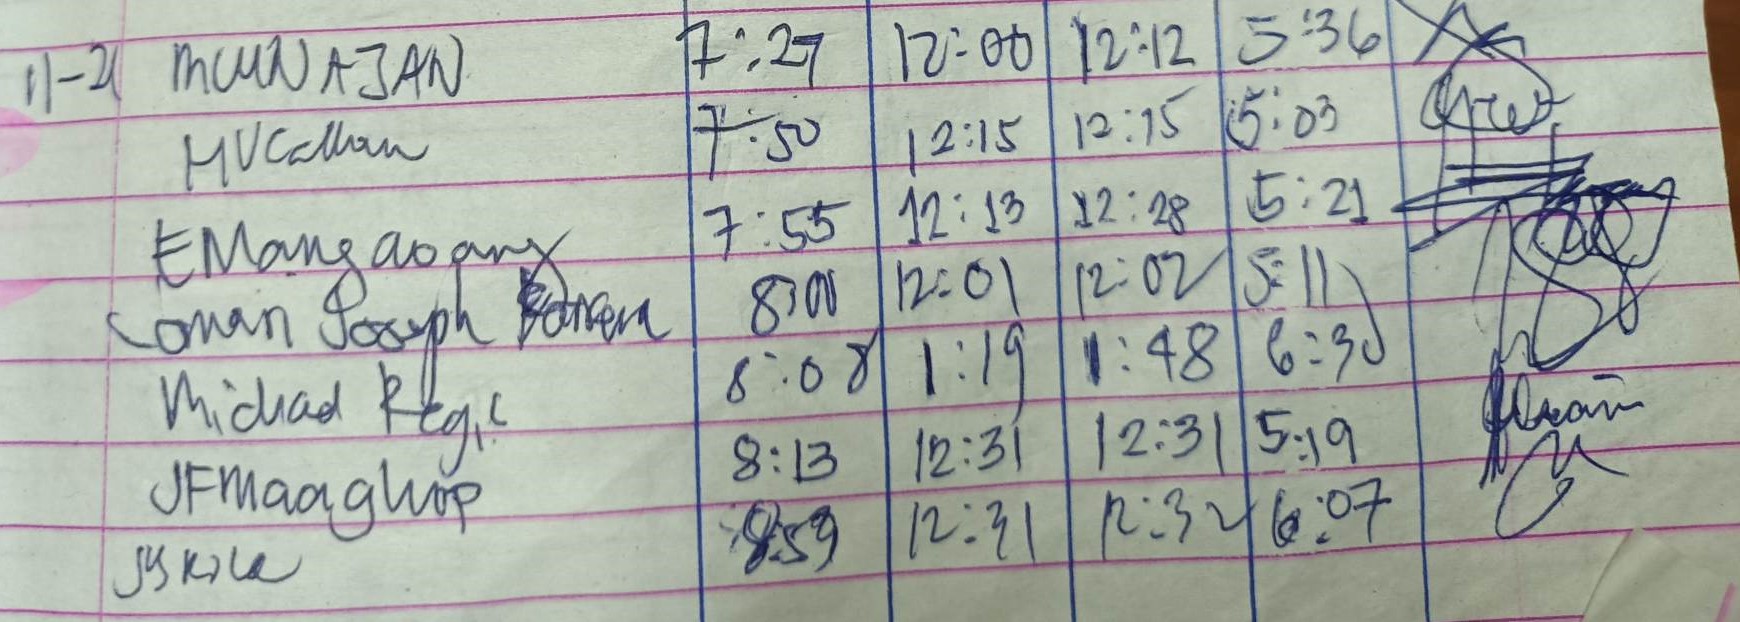 11-21 MCMUNAJAN 7:27 12:00 12:12 5:36
7:50 12:15 12:15 5:03
EMangaoang 7:55 12:13 12:28 5:21
Joseph 8:00 12:01 12:02 5:11
Michael Regic 8:08 1:19 1:48 6:30
JFMaaghop 8:13 12:31 12:31 5:19
8:59 12:31 12:32 6:07